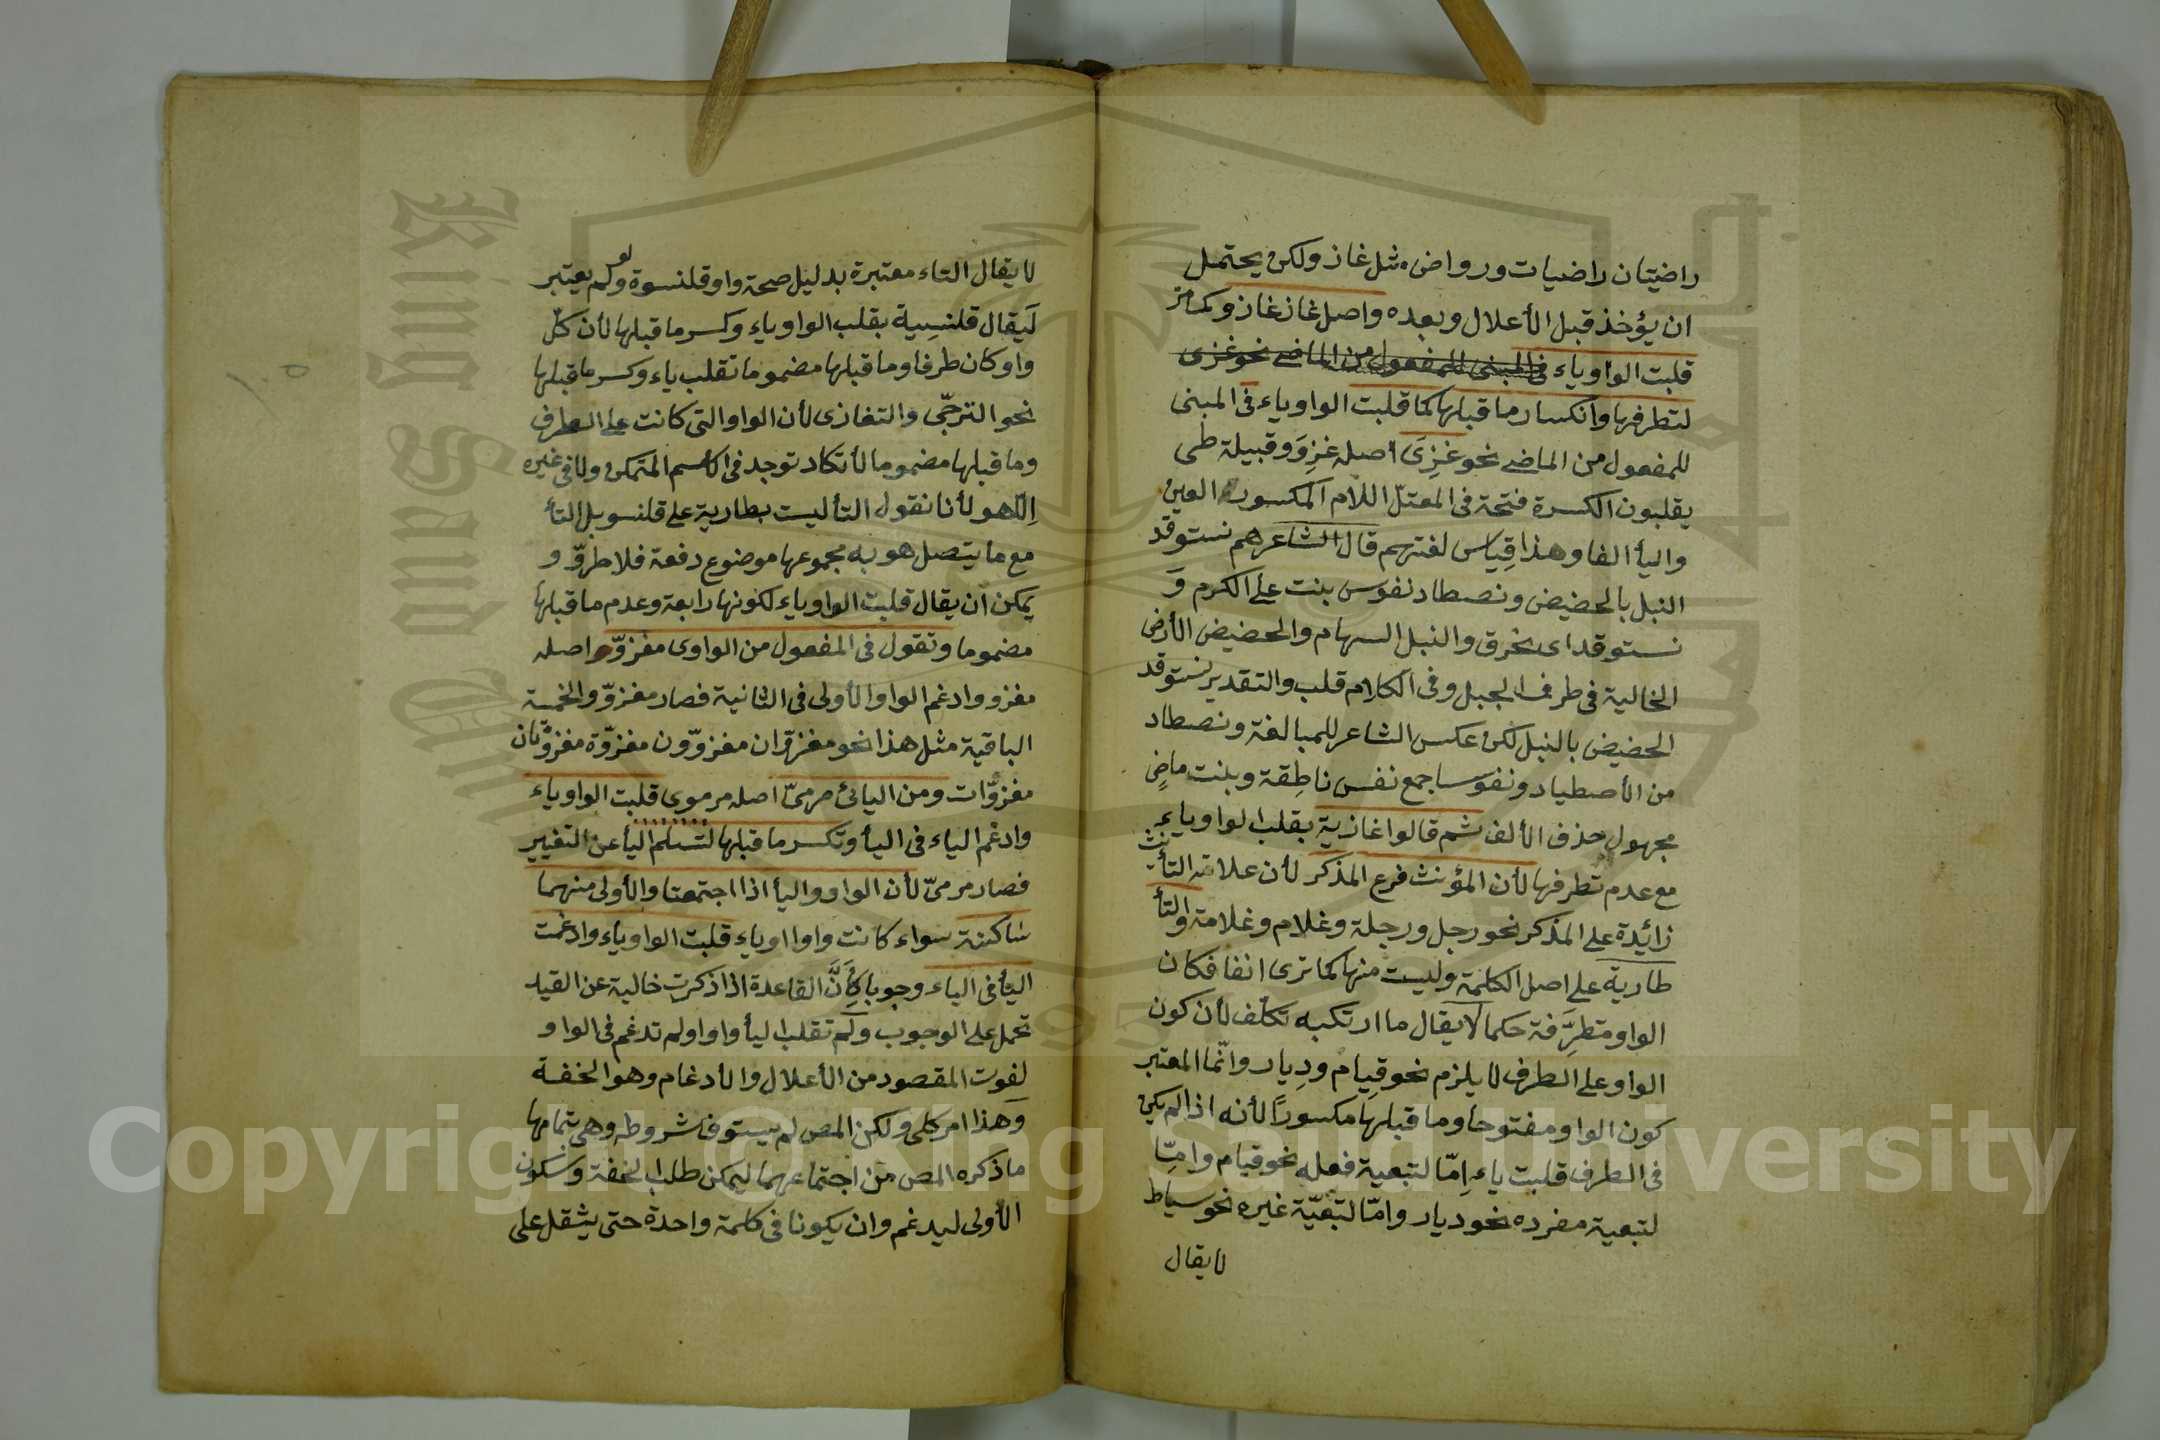 راضيتان راضيات ورواض مثل غاز ولكن يحتمل
ان يؤخذ قبل الأعلال وبعده واصل غاز غازو كما مر
قلبت الواو ياء فى المبنى للمفعول من الماضى نحو غزى
لتطرفها وانكسار ما قبلها كما قلبت الواو ياء فى المبنى
للمفعول من الماضى نحو غزِىَ اصله غزِوَ وقبيلة طى
يقلبون الكسرة فتحة فى المعتل اللام المكسور العين
واليأ الفا وهذا قِياس لغتهم قال الشاعر هم نستوقد
النبل بالحضيض ونصطاد نفوس بنت على الكرم وَ
نستوقد اى نحرق والنبل السهام والحضيض الأرض
الخالية فى طرف الجبل وفى الكلام قلب والتقدير نستوقد
الحضيض بالنبل لكن عكس الشاعر للمبالغة ونصطاد
من الأصطياد ونفوسا جمع نفس ناطِقة وبنت ماضٍ
مجهول حذف الألف ثم قالوا غازية بقلب الواو ياء
مع عدم تطرفها لأن المؤنث فرع المذكر لأن علامة التأنيث
زائدة على المذكر نحو رجل ورجلة وغلام وغلامة والتأ
طارية على اصل الكلمة وليست منها كما ترى انفا فكان
الواو متطرِّفة حكما لا يقال ما ارتكبه تكلّف لأن كون
الواو على الطرف لا يلزم نحو قِيام ودِيار وانّما المعتبر
كون الواو مفتوحا وما قبلها مكسورًا لأنه اذا لم يكن
فى الطرف قلبت ياء اِمّا لتبعية فعله نحو قيام وامّا
لتبعية مفرده نحو ديار وامّا لتبعيّة غيره نحو سياط
لا يقال
لا يقال التاء معتبرة بدليل صحة واو قلنسوة ولو لم يعتبر
لَيقال قلنسِية بقلب الواو ياء وكسر ما قبلها لأن كلّ
واو كان طرفا وما قبلها مضموما تقلب ياء وكسر ما قبلها
نحو الترجّى والتغازى لأن الواو التى كانت على الطرف
وما قبلها مضموما لا تكاد توجد فى الاسم المتمكن ولا فى غيره
اِلّا هو لأنا نقول التأ ليست بطارية على قلنسو بل التأ
مع ما يتصل هو به مجموعها موضوع دفعة فلا طروّ و
يمكن ان يقال قلبت الواو ياء لكونها رابعة وعدم ما قبلها
مضموما وتقول فى المفعول من الواوى مغزوّ اصله
مغزوو وادغم الواو الأولى فى الثانية فصار مغزوّ والخمسة
الباقية مثل هذا نحو مغزوّان مغزوّون مغزوّة مغزوّتان
مغزوّات ومن اليائى مرمىّ اصله مرموى قلبت الواو ياء
وادغم الياء فى اليأ وتكسر ما قبلها لتسلم اليأ عن التغيير
فصار مرمىّ لأن الواو واليأ اذا اجتمعتا والأولى منهما
ساكنة سواء كانت واوا او ياء قلبت الواو ياء وادغمت
اليأ فى الياء وجوبا لأَنَّ القاعدة اذا ذكرت خالية عن القيد
تحمل على الوجوب ولم تقلب اليأ واوا ولم تدغم فى الواو
لفوت المقصود من الأعلال والأدغام وهو الخفة
وهذا امر كلى ولكن المص لم يستوف شروطه وهى بتمامها
ما ذكره المص من اجتماعهما ليمكن طلب الخفة وسكون
الأولى ليدغم وان يكونا فى كلمة واحدة حتى يثقل على
King Saud University
Copyright © King Saud University